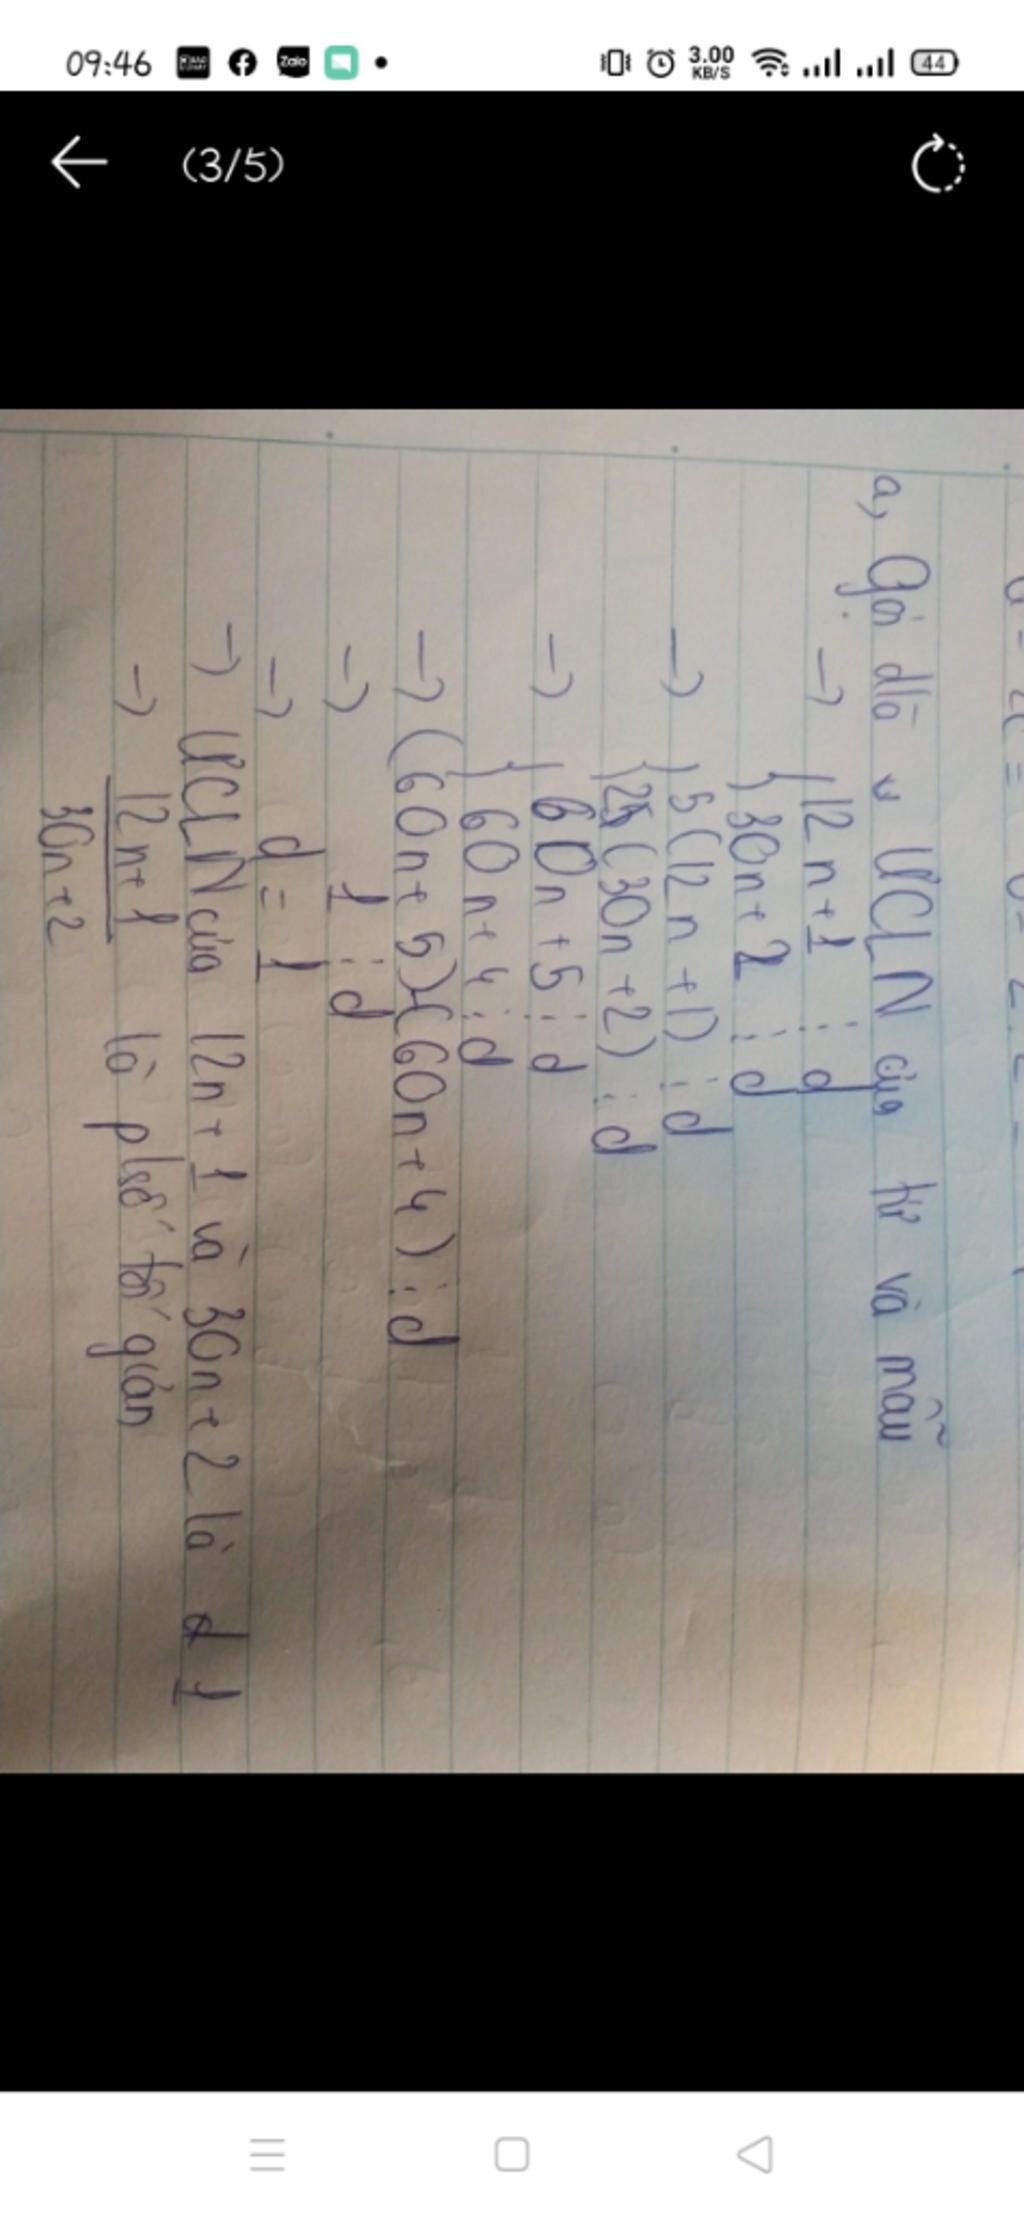 09:46
Zalo
3.00 KB/S
44
(3/5)
a, Gọi d là ƯCLN của tử và mẫu
→ { 12n+1 ⋮ d
{ 30n+2 ⋮ d
→ { 5(12n+1) ⋮ d
{ 2(30n+2) ⋮ d
→ { 60n+5 ⋮ d
{ 60n+4 ⋮ d
→ (60n+5)-(60n+4) ⋮ d
→ 1 ⋮ d
→ d = 1
→ ƯCLN của 12n+1 và 30n+2 là 1
→ 12n+1
30n+2
là p/số tối giản